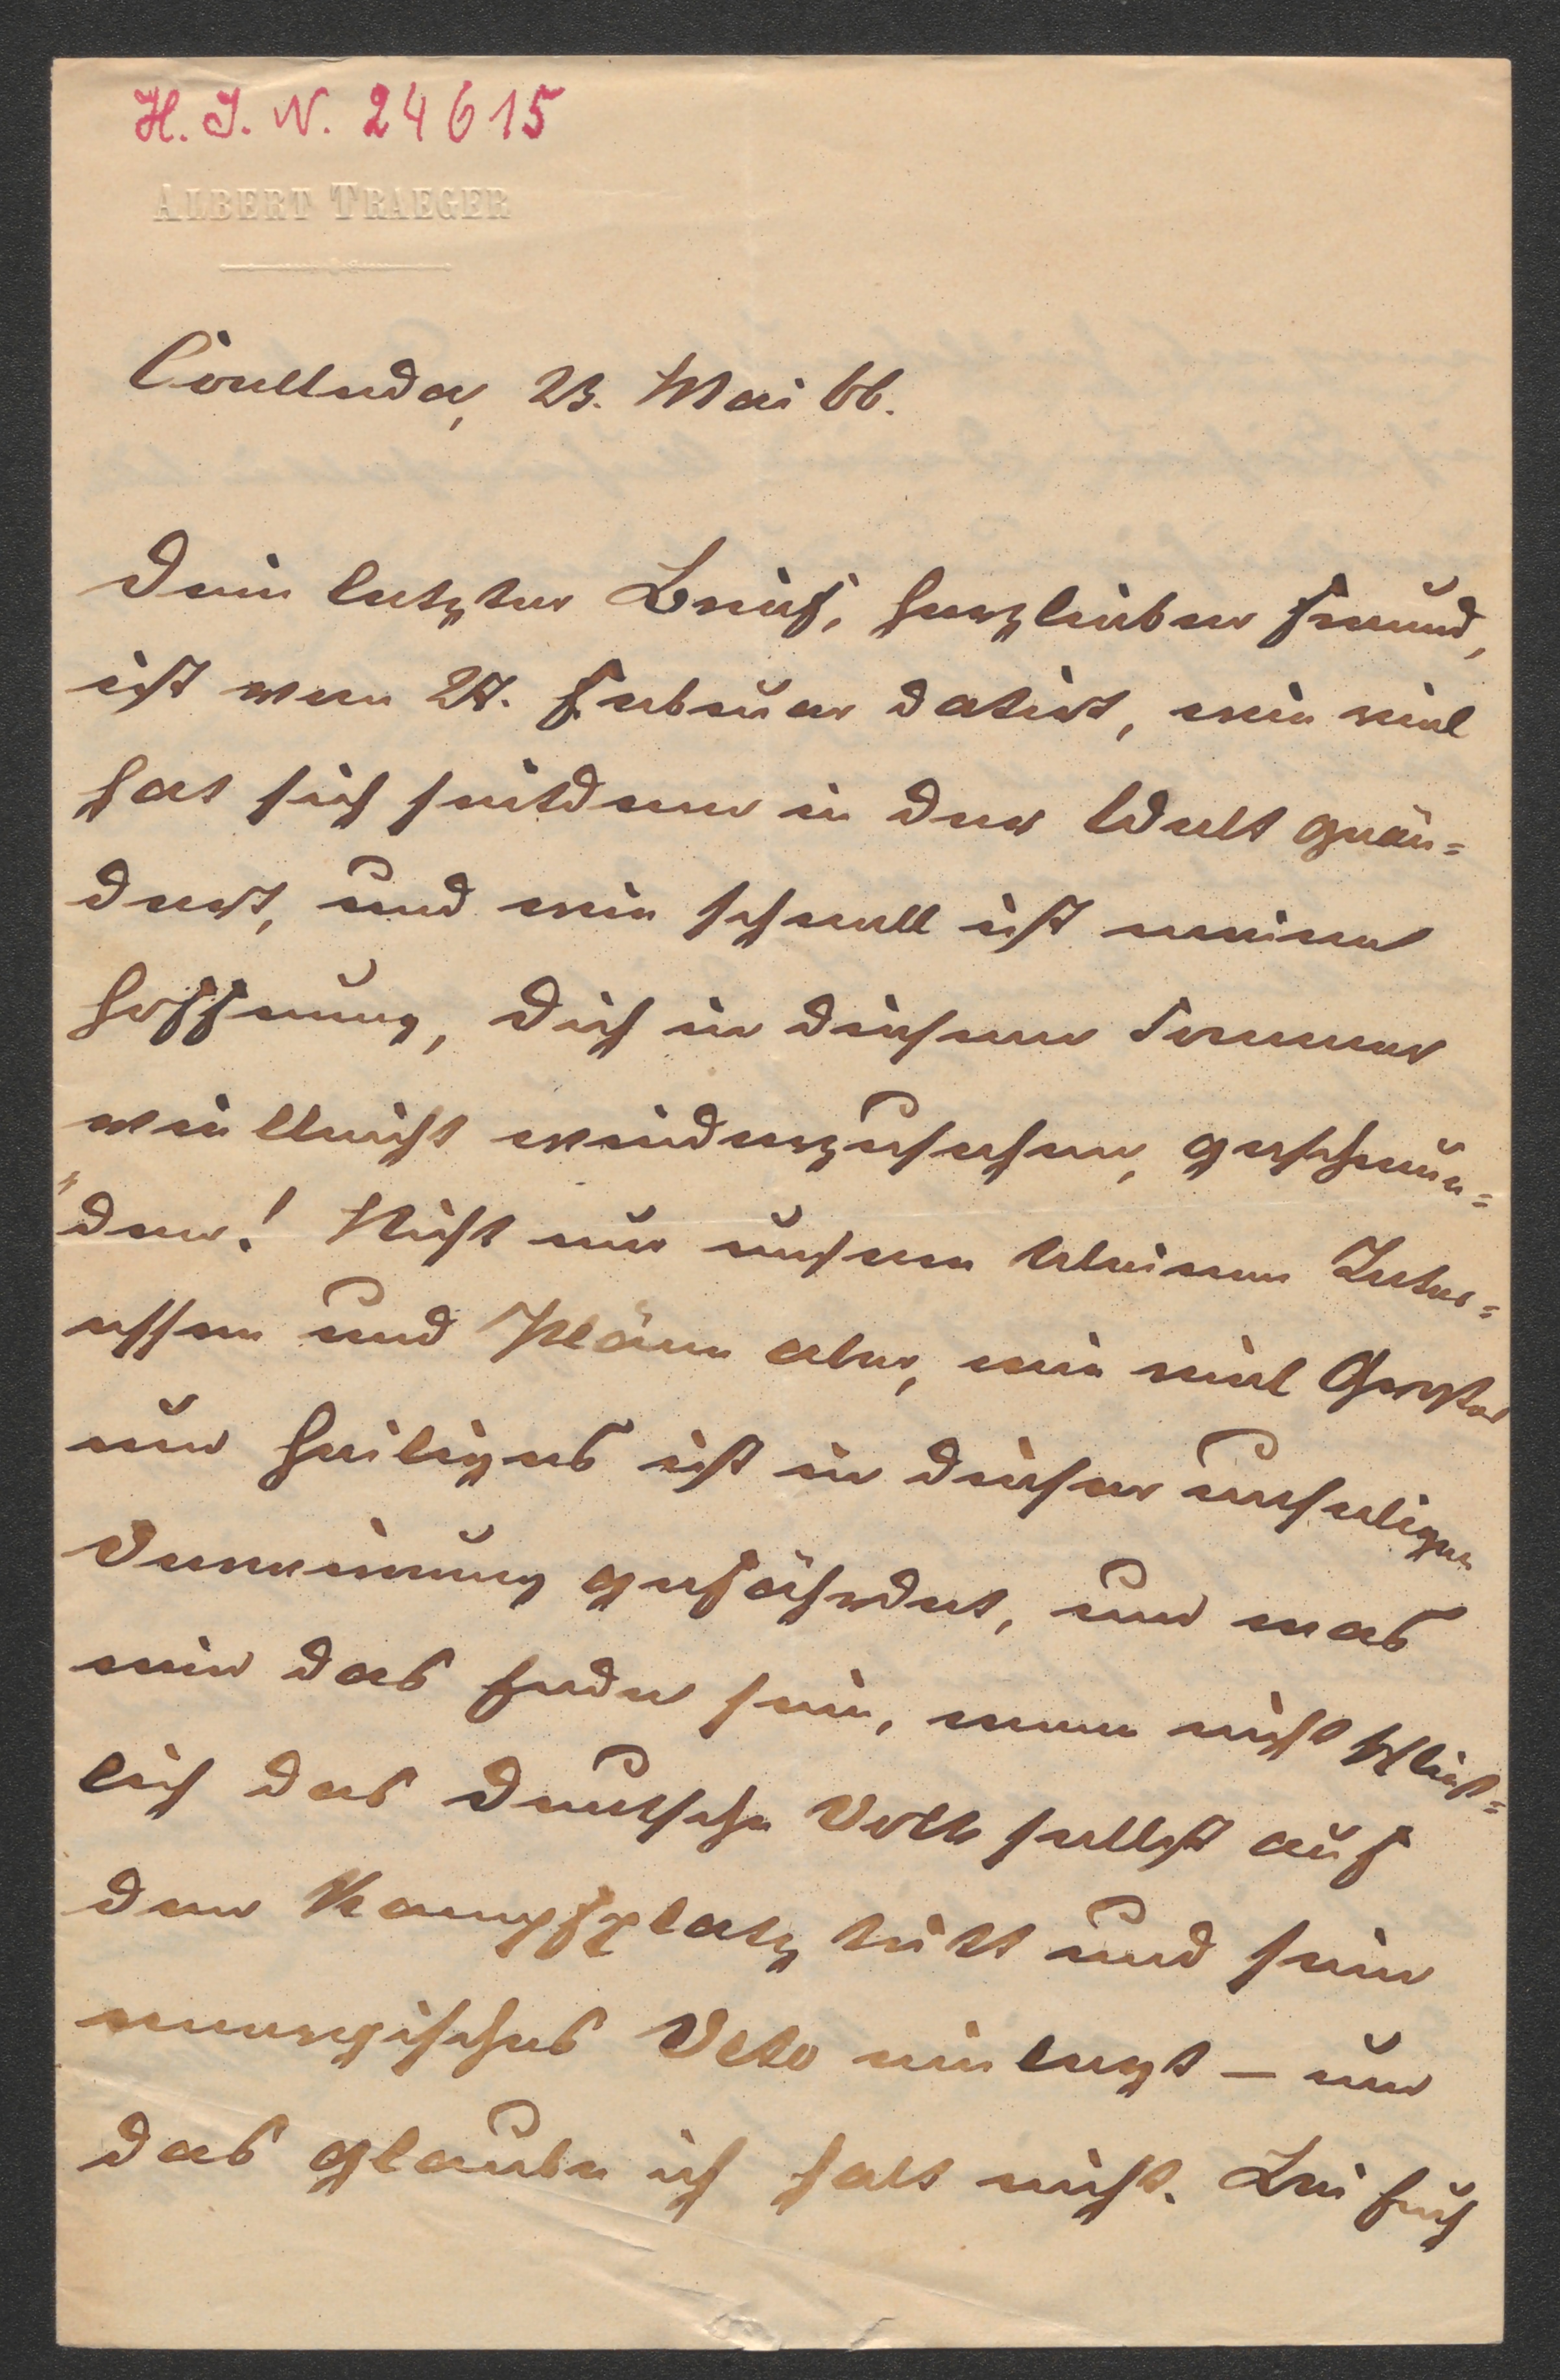 H. I. N. 24615
ALBERT TRAEGER
Coelleda, 23. Mai 66.
Dein letzter Brief, herzlieber Freund,
ist vom 27. Februar datirt, wie viel
hat sich seitdem in der Welt geän=
dert, und wie schnell ist meine
Hoffnung, Dich in diesem Sommer
vielleicht wiederzusehen, geschwun=
"den! Nicht nur unsere kleinen Inter=
essen und Pläne aber, wie viel Großes
und Heiliges ist in dieser unseligen
Verwirrung gefährdet, und was
wird das Ende sein, wenn nicht schließ=
lich das deutsche Volk selbst auf
den Kampfplatz tritt und sein
energisches Veto einlegt – und
das glaube ich halt nicht. Bei Euch